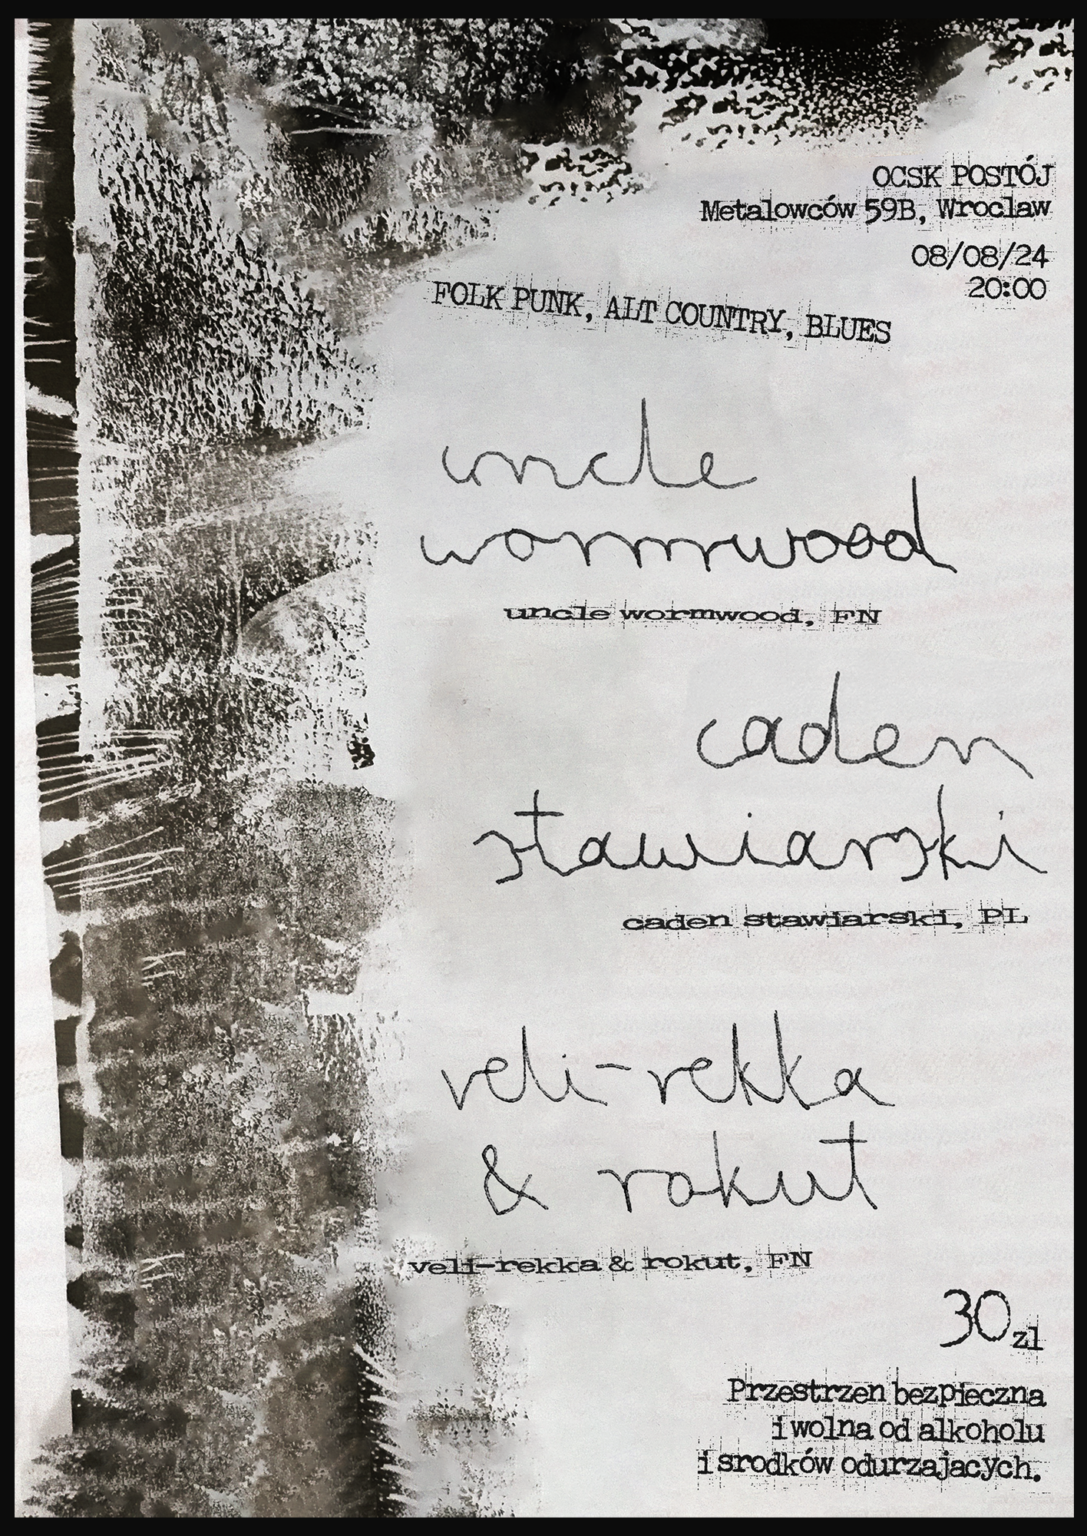 OCSK POSTÓJ
Metalowców 59B, Wroclaw
08/08/24
20:00
FOLK PUNK, ALT COUNTRY, BLUES
uncle
wormwood
uncle wormwood, FN
caden
stawiarski
caden stawiarski, PL
veli-rekka
& rokut
veli-rekka & rokut, FN
30 zl
Przestrzen bezpieczna
i wolna od alkoholu
i srodków odurzajacych.